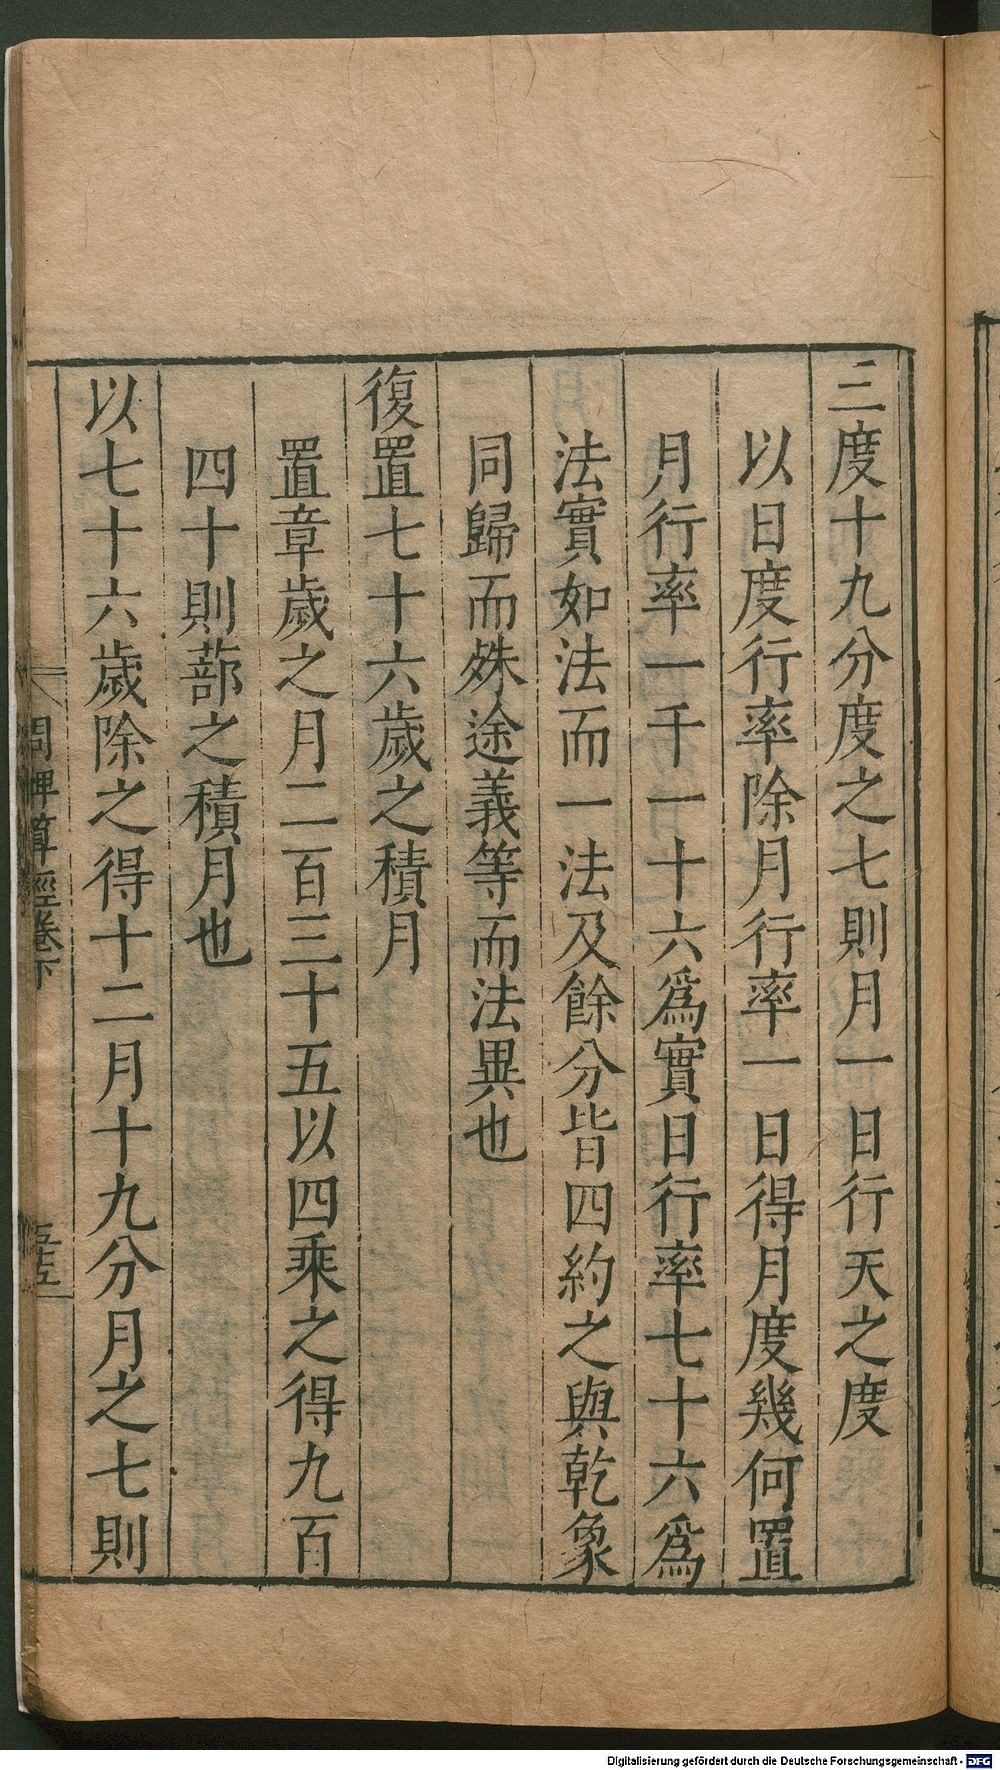 三度十九分度之七則月一日行天之度
以日度行率除月行率一日得月度幾何置
月行率一千一十六為實日行率七十六為
法實如法而一法及餘分皆四約之與乾象
同歸而殊途義等而法異也
復置七十六歲之積月
置章歲之月二百三十五以四乘之得九百
四十則蔀之積月也
以七十六歲除之得十二月十九分月之七則
周髀算經卷下
Digitalisierung gefördert durch die Deutsche Forschungsgemeinschaft - DFG